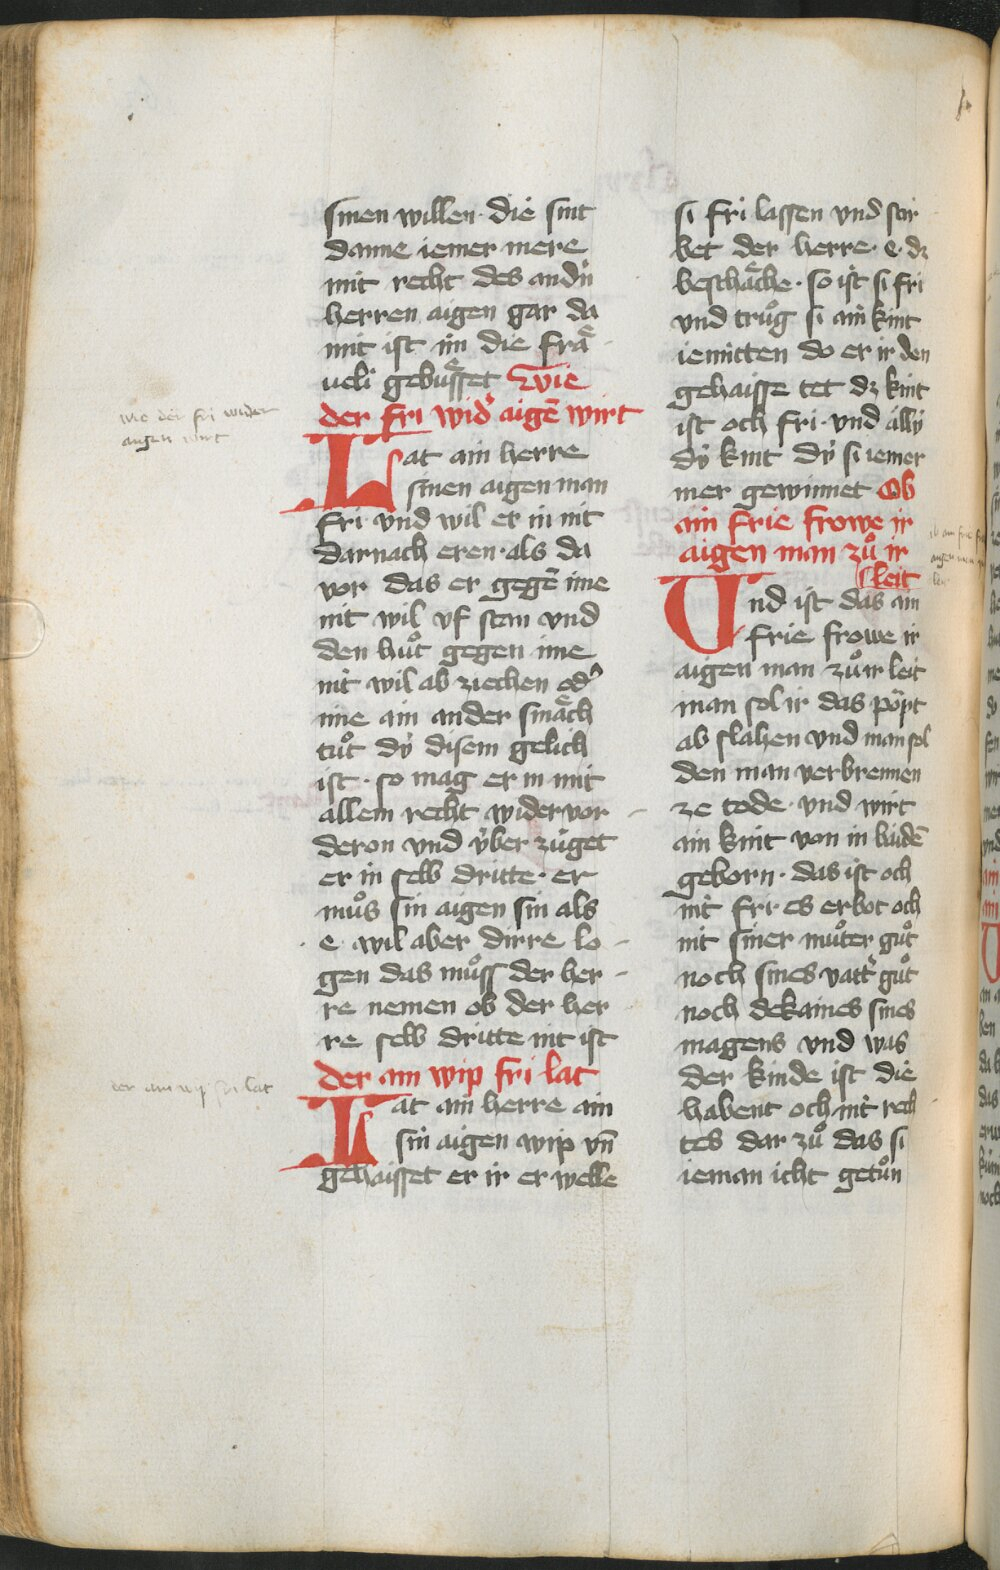 sinen willen · die sint
danne iemer mere
mit recht des andn̄
herren aigen gar da
mit ist im die fraͤ
ueli gebuͤsset Wie
der fri wid̄ aigē wirt
Lat ain herre
sinen aigen man
fri · vnd wil er in nit
darnach eren · als da
vor das er gegē ime
nit wil vf sten vnd
den huͦt gegen ime
nit wil ab ziechen od̄
ime ain ander smaͤch
tuͦt dy̍ disem gelich
ist · so mag er in mit
allem recht wider vor
deron vnd v̍ber zu̍get
er in selb dritte · er
muͦs sin aigen sin als
e · wil aber dirre lo
gen das muͦss der her
re nemen ob der her
re selb dritte nit ist
der ain wip fri lat
Lat ain herre ain
sin aigen wip vn̄
gehaisset er ir er welle
si fri lassen vnd stir
bet der herre · e · dz
beschaͤche · so ist si fri
vnd truͦg si ain kint
iemitten do er ir den
gehaisse tet dz kint
ist och fri · vnd ally̍
dy̍ kint dy̍ si iemer
mer gewinnet Ob
ain frie frowe ir
aigen man zuͦ ir
leit
Vnd ist das ain
frie frowe ir
aigen man zuͦ ir leit
man sol ir das höpt
ab slahen vnd man sol
den man verbrennen
ze tode · vnd wirt
ain kint von in baidē
geborn · das ist och
nit fri · es erbot och
nit siner muͦter guͦt
noch sines vatt̄ guͦt
noch dekaines sines
magens vnd was
der kinde ist die
habent och nit rech
tes dar zuͦ das si
ieman icht getuͦn
wie der fri wider
aigen wirt
der ain wip fri lat